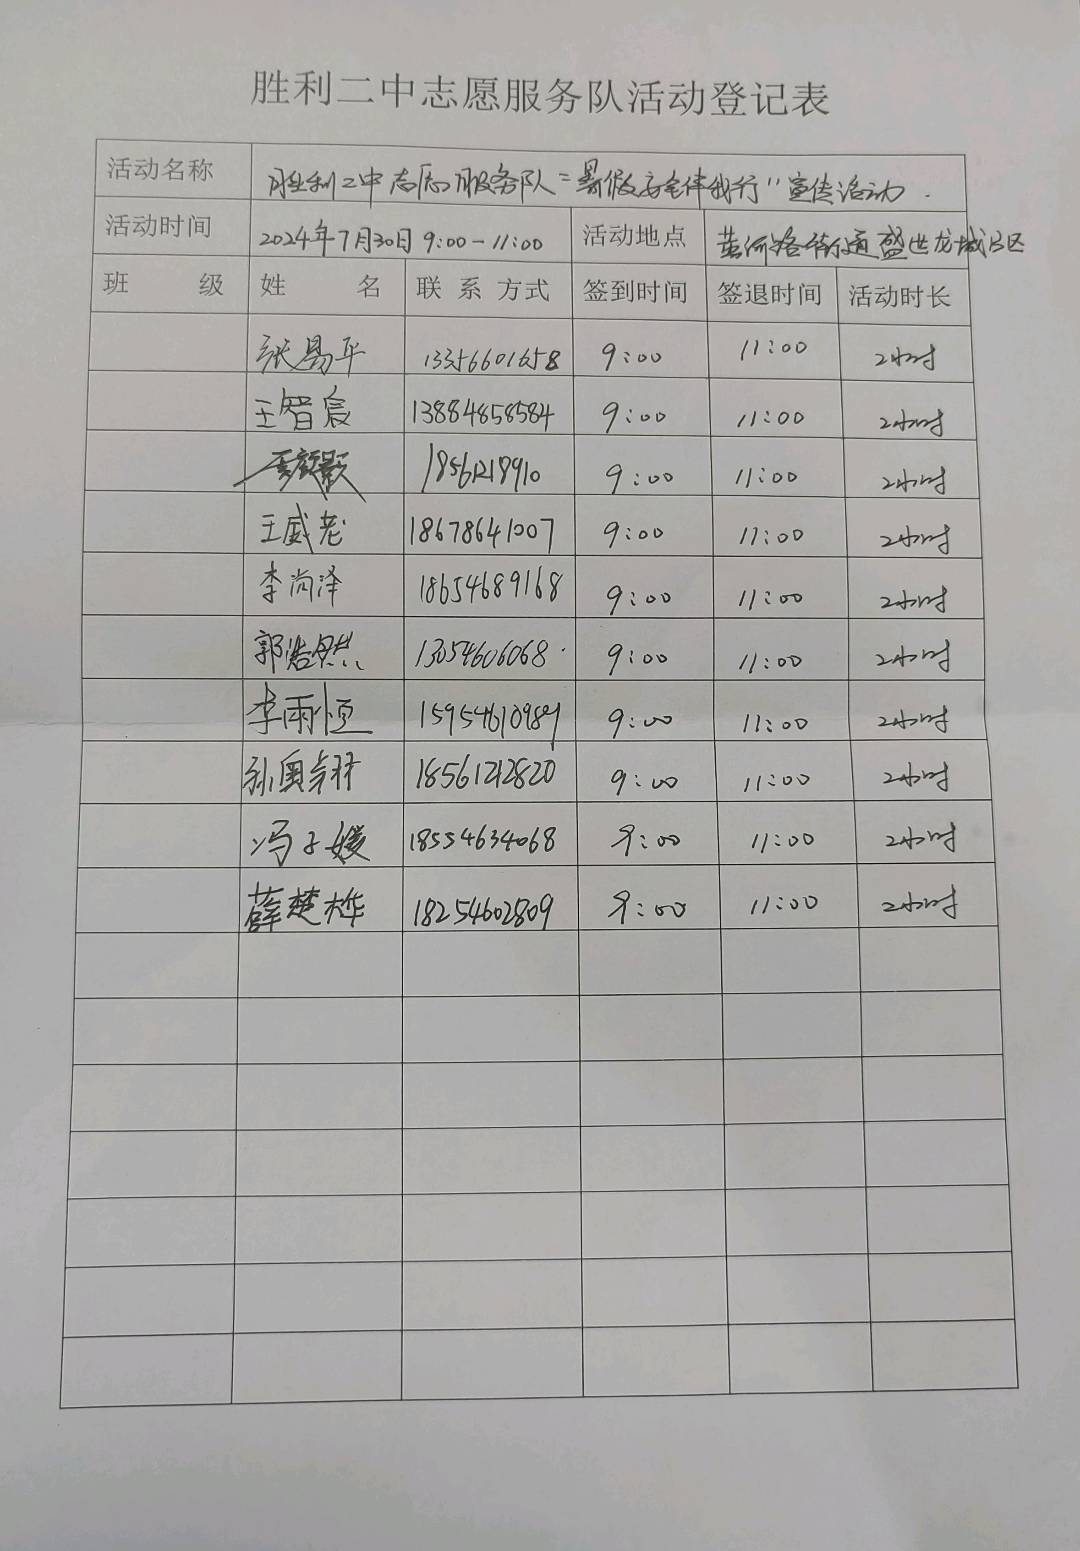 胜利二中志愿服务队活动登记表
活动名称 胜利二中志愿服务队"暑假安全伴我行"宣传活动.
活动时间 2024年7月30日 9:00-11:00 活动地点 黄河路街道盛世龙城小区
班 级 姓 名 联 系 方式 签到时间 签退时间 活动时长
张易平 13356601658 9:00 11:00 2小时
王智宸 13884858584 9:00 11:00 2小时
18561218910 9:00 11:00 2小时
王威 18678641007 9:00 11:00 2小时
李尚泽 18654689168 9:00 11:00 2小时
郭浩然 13054606068 9:00 11:00 2小时
李雨恒 15954610989 9:00 11:00 2小时
孙奥翔 18561212820 9:00 11:00 2小时
冯子媛 18554634068 9:00 11:00 2小时
薛楚桦 18254602809 9:00 11:00 2小时